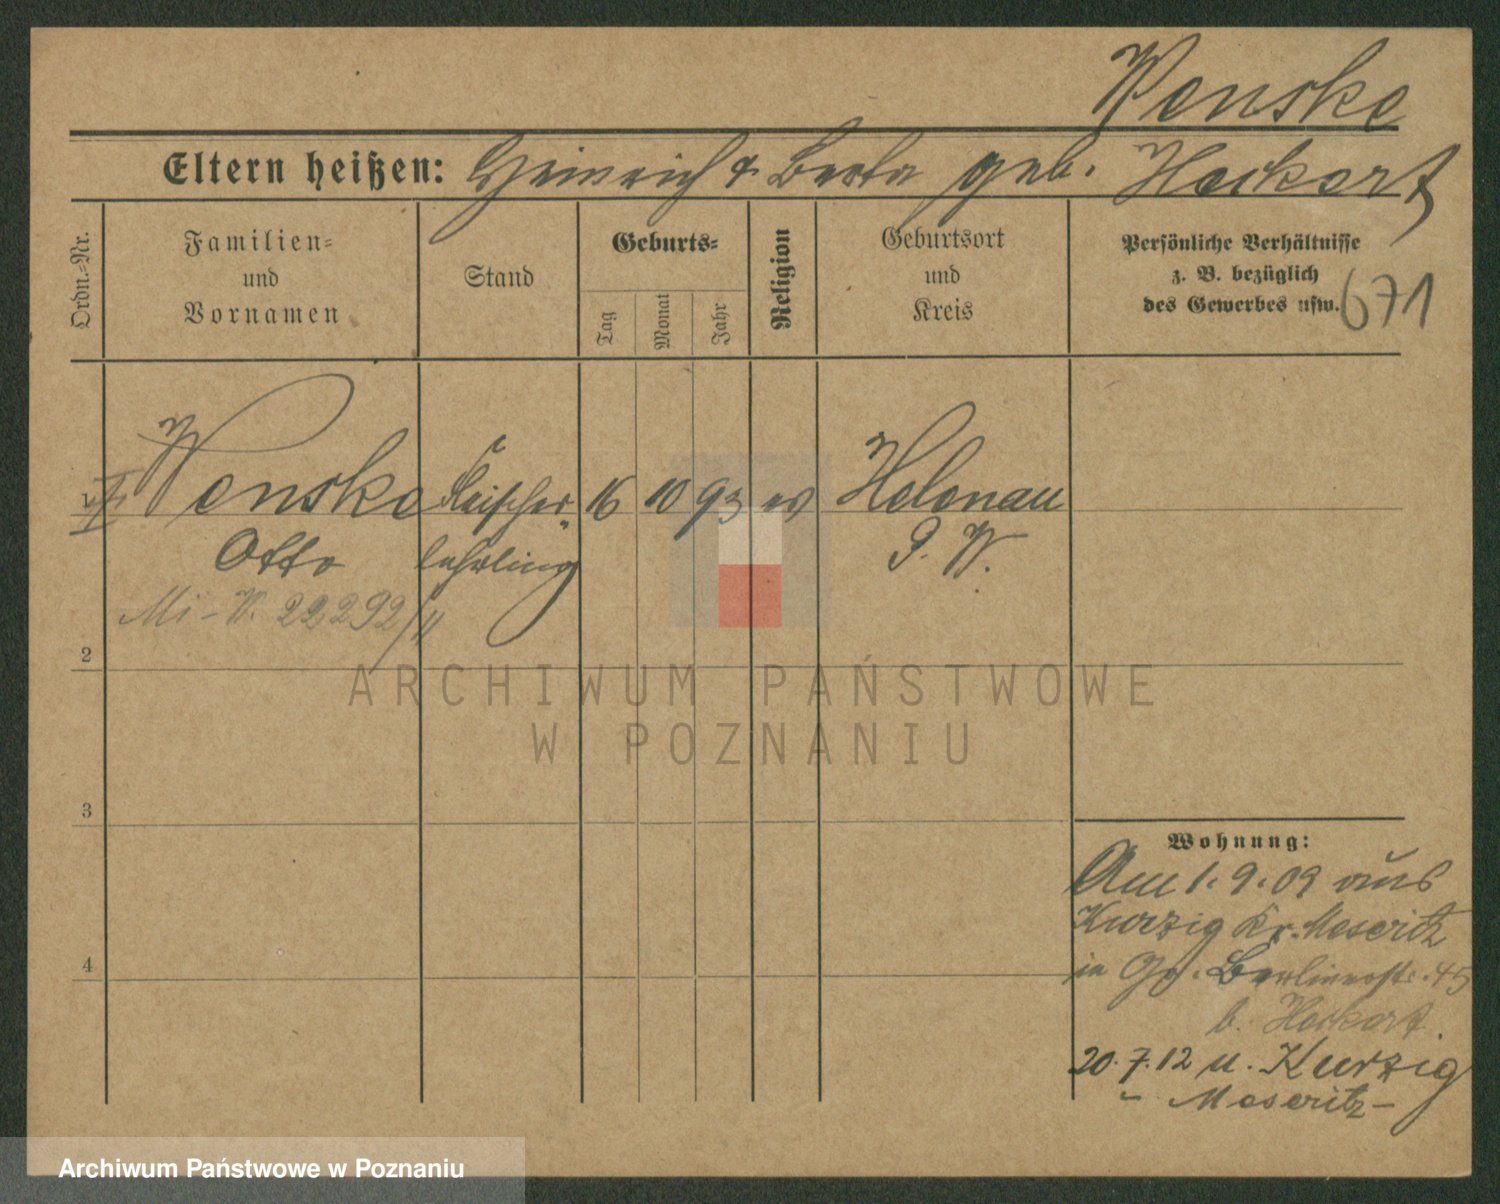 Wenske
Eltern heißen: Heinrich & Berta geb. Heckert
Ordn.-Nr.
Familien-
und
Vornamen
Stand
Geburts-
Tag
Monat
Jahr
Religion
Geburtsort
und
Kreis
Persönliche Verhältnisse
z. B. bezüglich
des Gewerbes usw. 671
1 Wenske Fleischer- 16 10 93 ev Helenau
Otto lehrling P. W.
Mi - W. 22292/11
2
3
4
Wohnung:
Am 1.9.09 aus
Kurzig Kr. Meseritz
in Gr. Berlinerstr. 45
b. Heckert.
20.7.12 n. Kurzig
- Meseritz -
ARCHIWUM PAŃSTWOWE
W POZNANIU
Archiwum Państwowe w Poznaniu